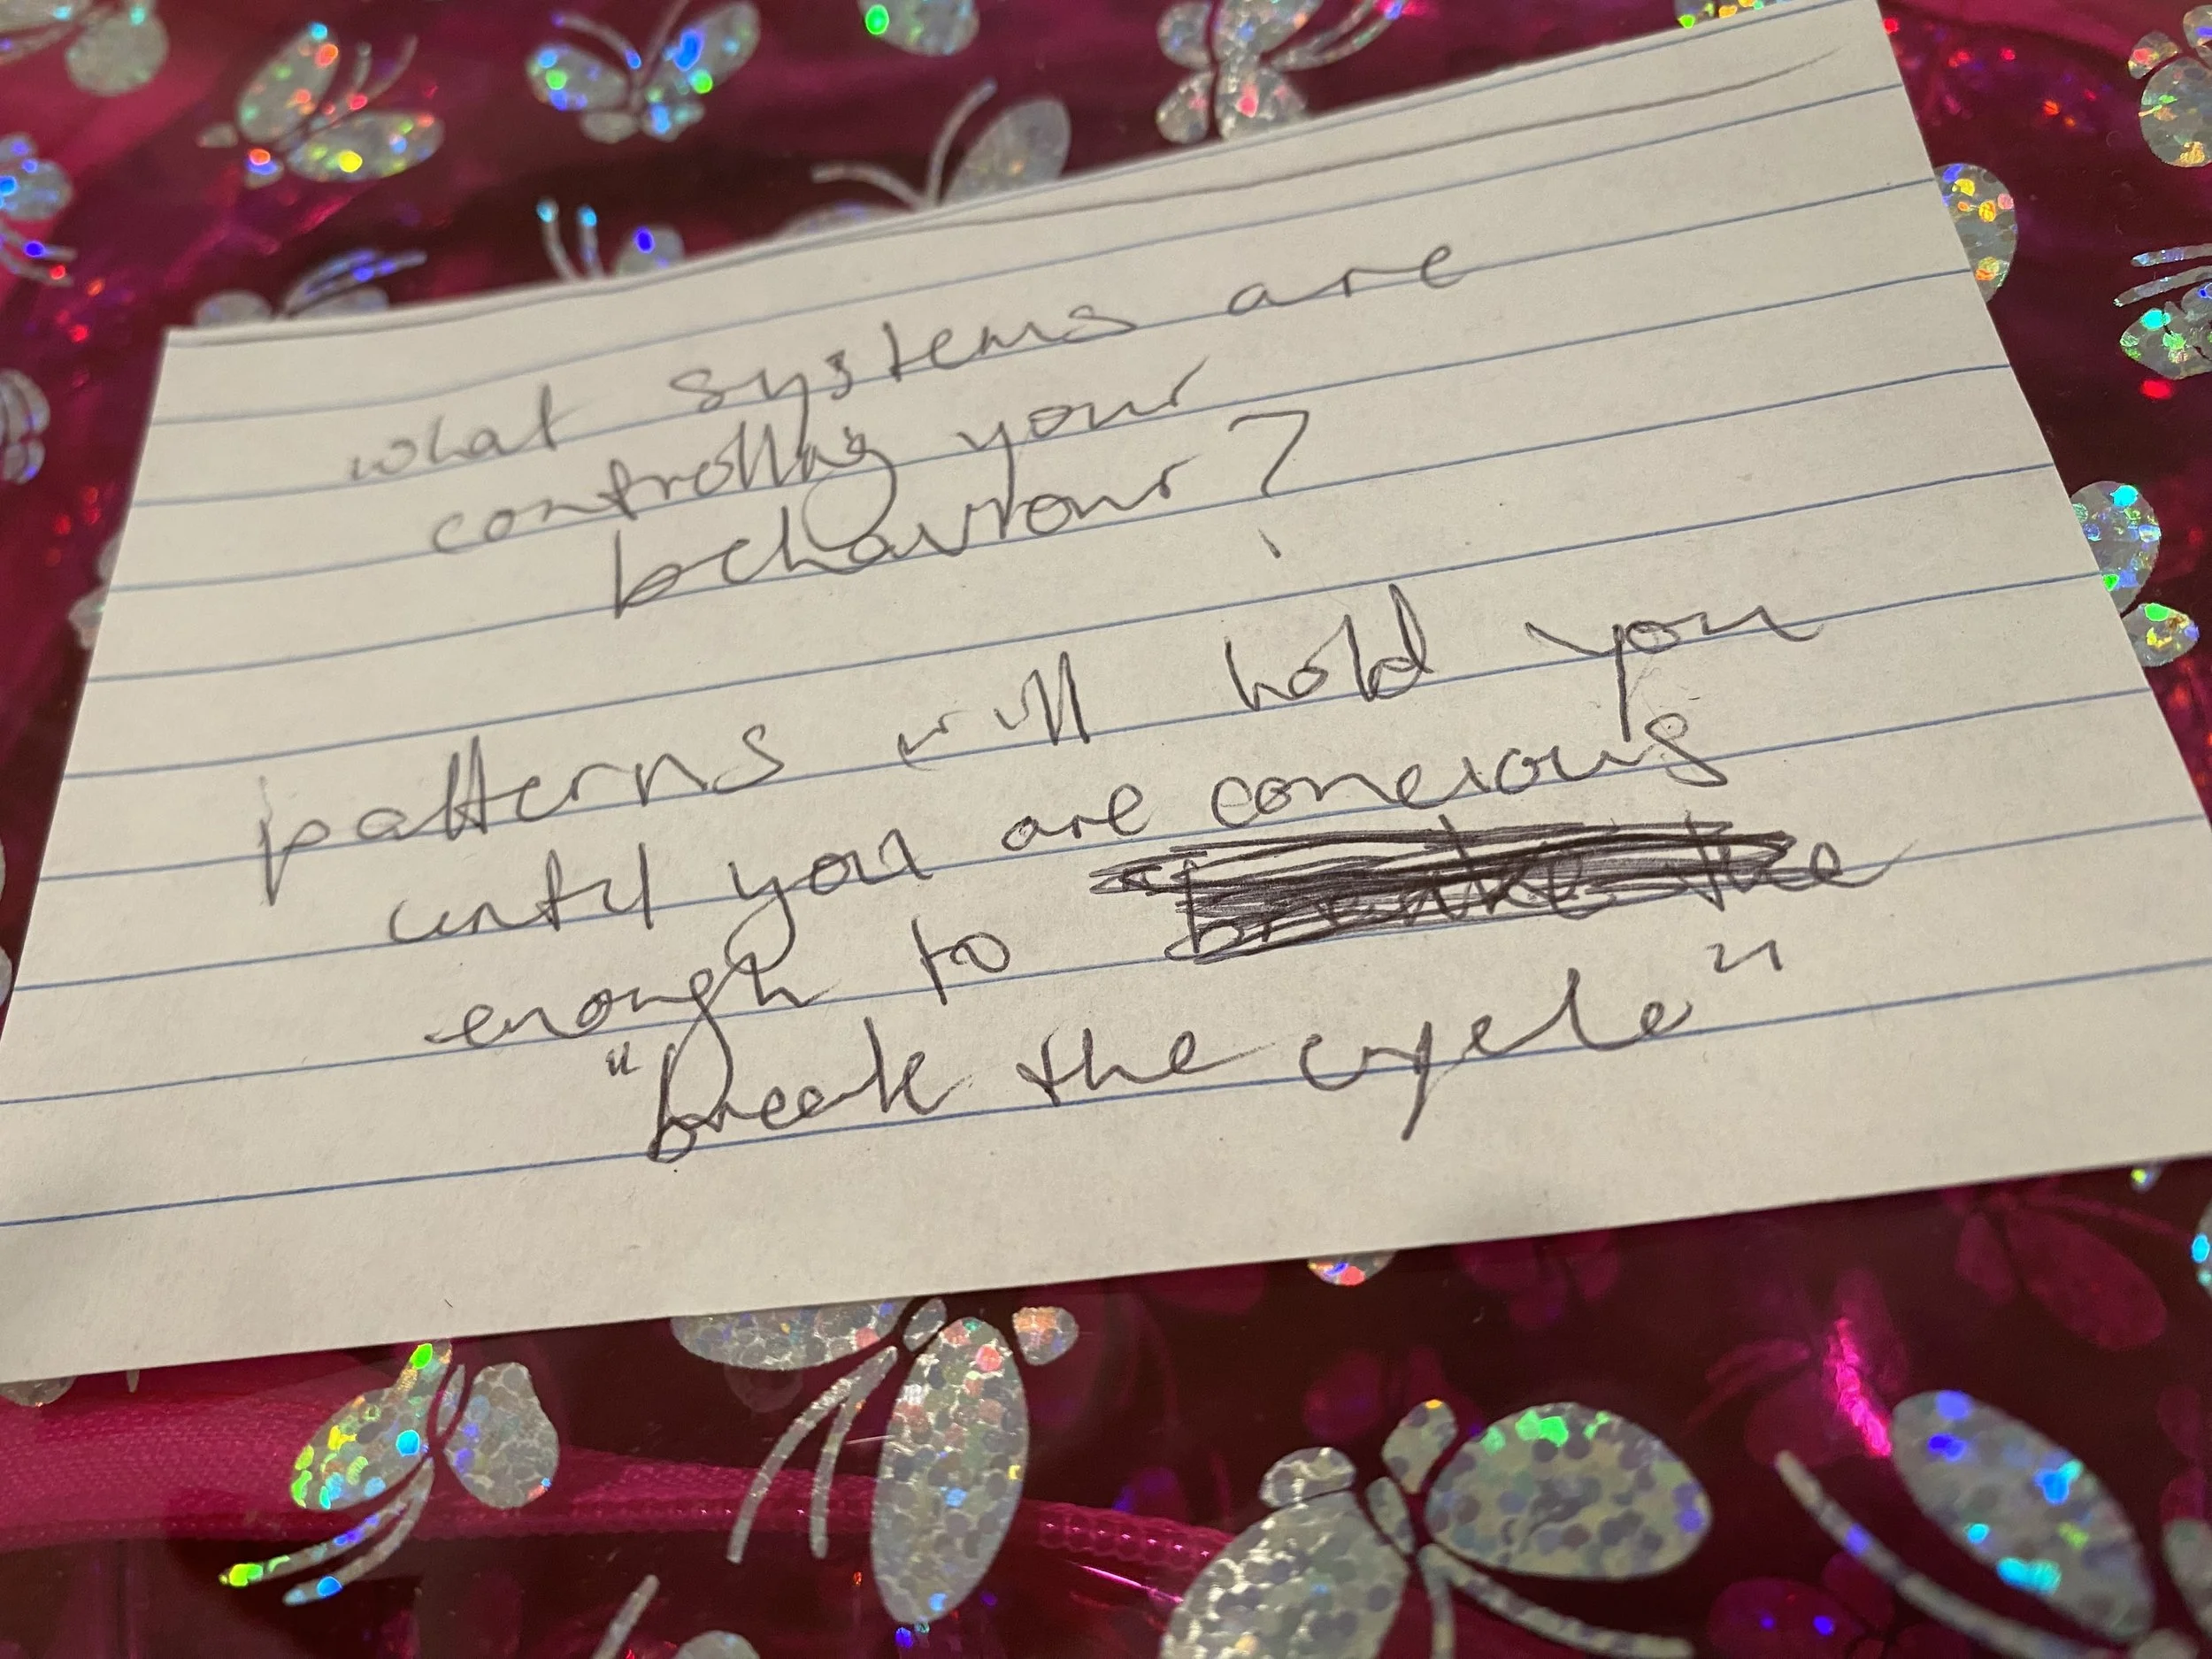 what systems are
controlling your
behaviour?
patterns will hold you
until you are concious
enough to the
"break the cycle"